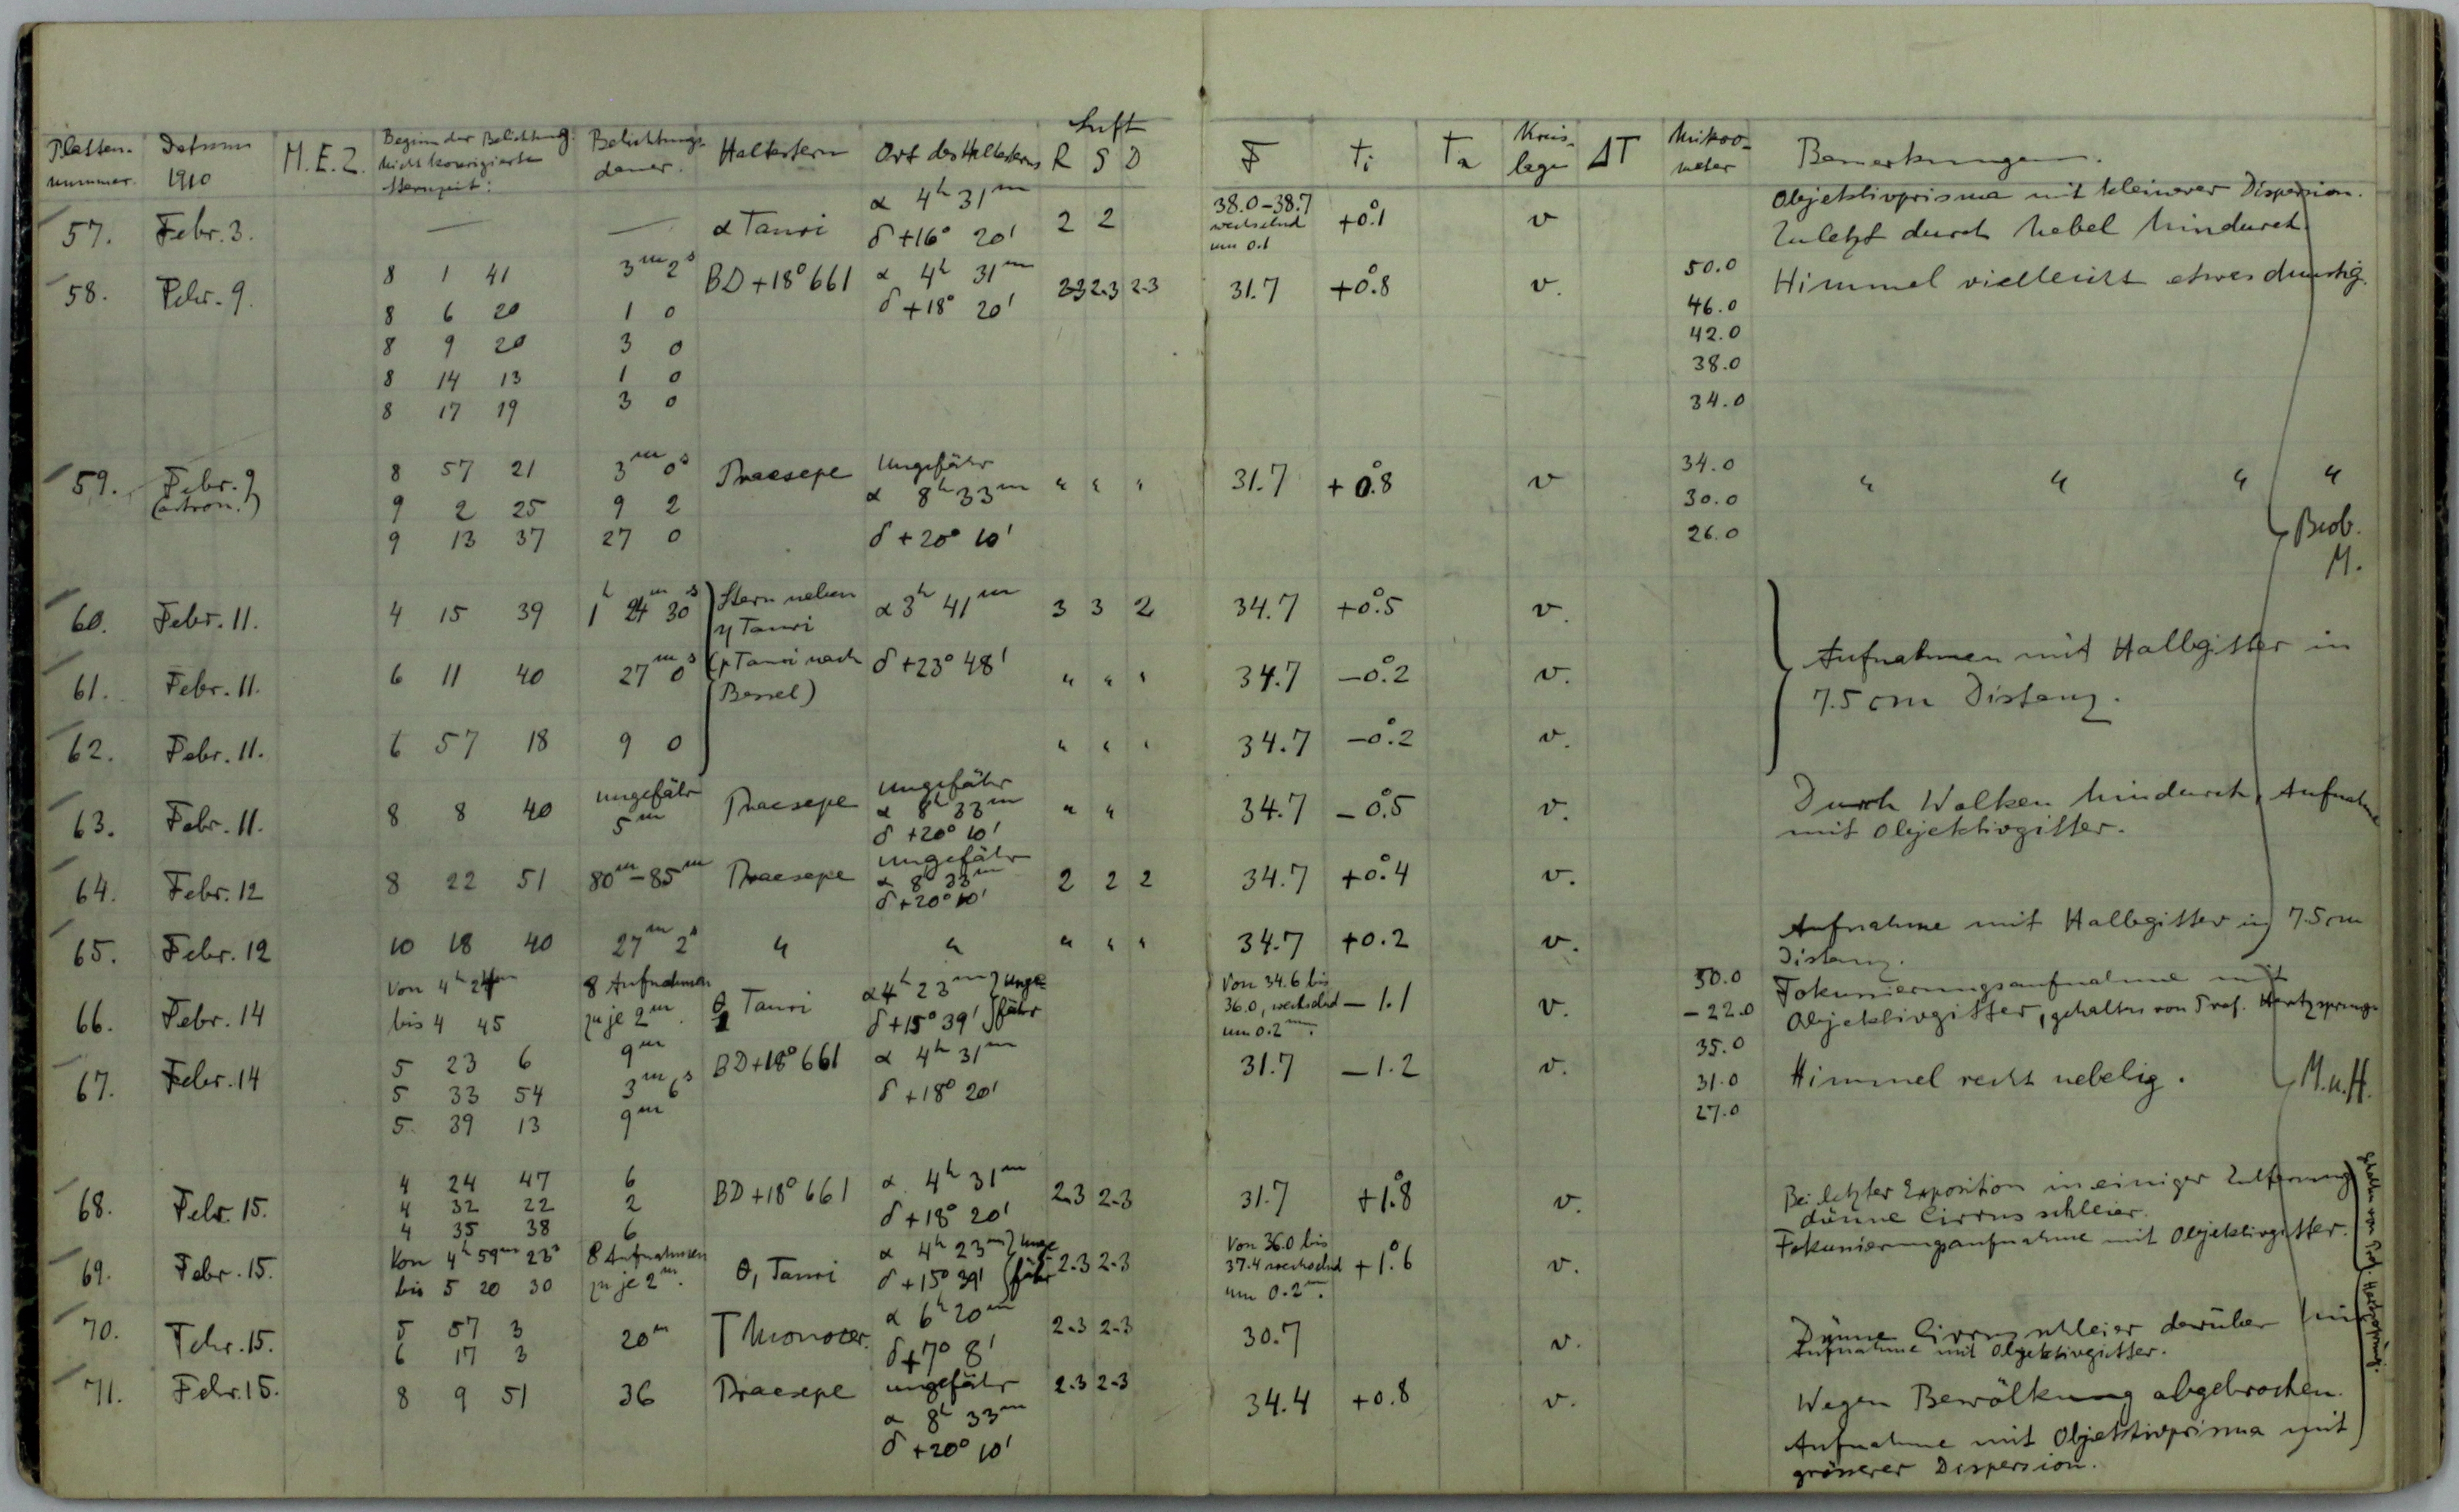 Luft
Platten- Datum M.E.Z. Beginn der Belichtung Belichtungs- Haltestern Ort des Haltesterns R S D F ti Ta Kreis- ΔT Mikro- Bemerkungen.
nummer. 1910 nicht korrigierte dauer. lage meter
Sternzeit:
57. Febr. 3. — — α Tauri α 4h 31m 2 2 38.0-38.7 +0.°1 v Objektivprisma mit kleinerer Dispersion.
δ +16° 20' wechselnd Zuletzt durch Nebel hindurch.
um 0.1
58. Febr. 9. 8 1 41 3m 2s BD +18° 661 α 4h 31m 2-3 2-3 2-3 31.7 +0.°8 v. 50.0 Himmel vielleicht etwas dunstig.
8 6 20 1 0 δ +18° 20' 46.0
8 9 20 3 0 42.0
8 14 13 1 0 38.0
8 17 19 3 0 34.0
59. Febr. 9 8 57 21 3m 0s Praesepe Ungefähr " " " 31.7 +0.°8 v 34.0 " " " "
(astron.) 9 2 25 9 2 α 8h 33m 30.0
9 13 37 27 0 δ +20° 10' 26.0 Beob.
M.
60. Febr. 11. 4 15 39 1h 24m 30s Stern neben α 3h 41m 3 3 2 34.7 +0.°5 v.
η Tauri
61. Febr. 11. 6 11 40 27m 0s (p Tauri nach δ +23° 48' " " " 34.7 -0.°2 v. Aufnahmen mit Halbgitter in
Bessel) 7.5 cm Distanz.
62. Febr. 11. 6 57 18 9 0 " " " 34.7 -0.°2 v.
63. Febr. 11. 8 8 40 ungefähr Praesepe ungefähr " " 34.7 -0.°5 v. Durch Wolken hindurch, Aufnahme
5m α 8h 33m mit Objektivgitter.
δ +20° 10'
64. Febr. 12 8 22 51 80m-85m Praesepe ungefähr 2 2 2 34.7 +0.°4 v.
α 8h 33m
δ +20° 10'
65. Febr. 12 10 18 40 27m 2s " " " " " 34.7 +0.2 v. Aufnahme mit Halbgitter in 7.5 cm
Distanz.
66. Febr. 14 Von 4h 24m 8 Aufnahmen θ1 Tauri α 4h 23m } unge- Von 34.6 bis -1.1 v. 50.0 Fokussierungsaufnahme mit
bis 4 45 zu je 2m. δ +15° 39' } fähr 36.0, wechselnd -22.0 Objektivgitter, gehalten von Prof. Hertzsprung.
um 0.2mm.
67. Febr. 14 5 23 6 9m BD +18° 661 α 4h 31m 31.7 -1.2 v. 35.0
5 33 54 3m 6s δ +18° 20' 31.0 Himmel recht nebelig. M.u.H.
5 39 13 9m 27.0
68. Febr. 15. 4 24 47 6 BD +18° 661 α 4h 31m 2.3 2-3 31.7 +1.°8 v. Bei letzter Exposition in einiger Entfernung
4 32 22 2 δ +18° 20' dünne Cirrusschleier.
4 35 38 6
69. Febr. 15. Von 4h 59m 23s 8 Aufnahmen θ1 Tauri α 4h 23m } unge 2.3 2-3 Von 36.0 bis +1.°6 v. Fokussierungsaufnahme mit Objektivgitter.
bis 5 20 30 zu je 2m. δ +15° 39' } fähr 37.4 wechselnd
um 0.2m.
70. Febr. 15. 5 57 3 20m T Monocer. α 6h 20m 2.3 2-3 30.7 v. Dünne Cirrusschleier darüber hin
6 17 3 δ +7° 8' Aufnahme mit Objektivgitter.
71. Febr. 15. 8 9 51 36 Praesepe ungefähr 2.3 2-3 34.4 +0.8 v. Wegen Bewölkung abgebrochen.
α 8h 33m Aufnahme mit Objektivprisma mit
δ +20° 10' grösserer Dispersion.
gehalten von Prof. Hertzsprung.